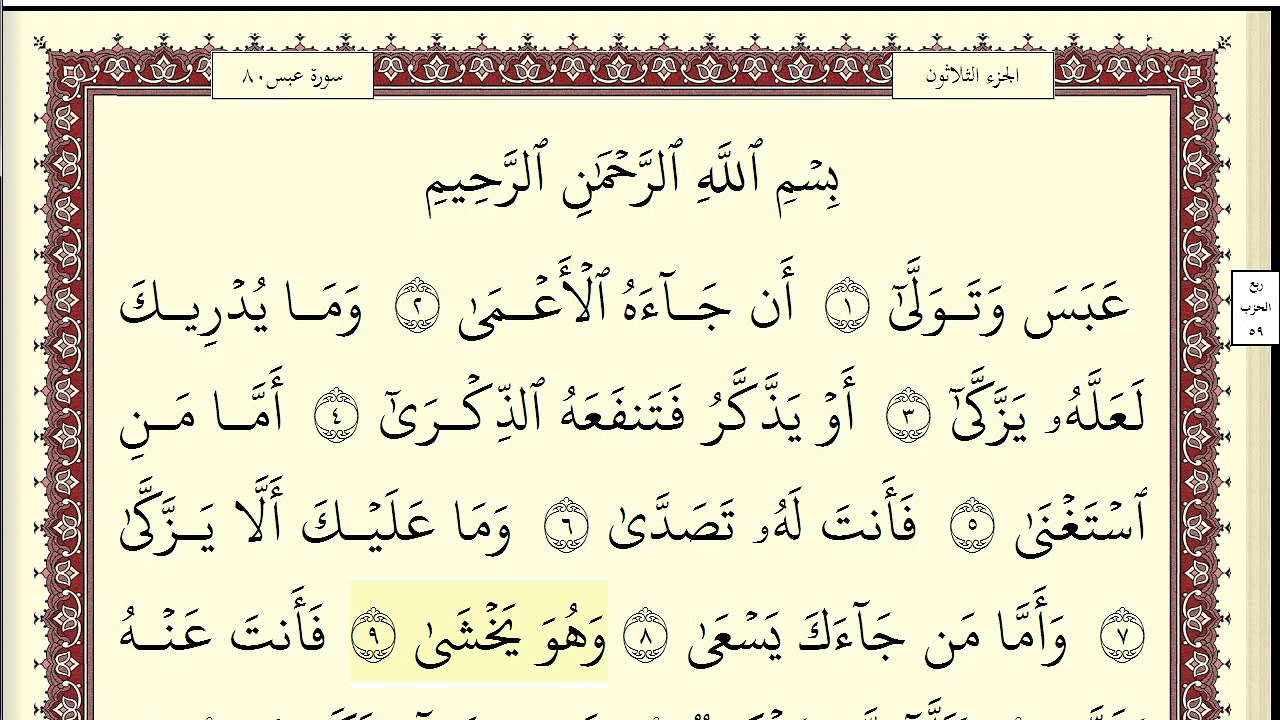 الجزء الثلاثون
سورة عبس ٨٠
بِسْمِ ٱللَّهِ ٱلرَّحْمَٰنِ ٱلرَّحِيمِ
عَبَسَ وَتَوَلَّىٰٓ ١ أَن جَآءَهُ ٱلْأَعْمَىٰ ٢ وَمَا يُدْرِيكَ
لَعَلَّهُۥ يَزَّكَّىٰٓ ٣ أَوْ يَذَّكَّرُ فَتَنفَعَهُ ٱلذِّكْرَىٰٓ ٤ أَمَّا مَنِ
ٱسْتَغْنَىٰ ٥ فَأَنتَ لَهُۥ تَصَدَّىٰ ٦ وَمَا عَلَيْكَ أَلَّا يَزَّكَّىٰ
٧ وَأَمَّا مَن جَآءَكَ يَسْعَىٰ ٨ وَهُوَ يَخْشَىٰ ٩ فَأَنتَ عَنْهُ
ربع
الحزب
٥٩